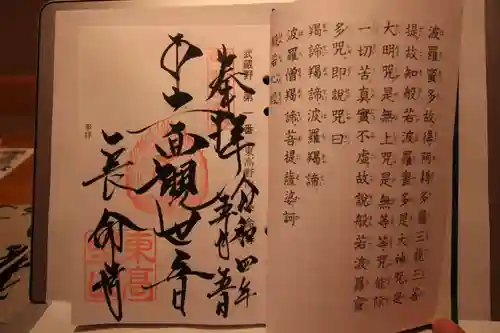 波羅蜜多故得阿耨多羅三藐三菩
提故知般若波羅蜜多是大神咒是
大明咒是無上咒是無等等咒能除
一切苦真實不虚故說般若波羅蜜
多咒即說咒曰
羯諦羯諦波羅羯諦
波羅僧羯諦菩提薩婆訶
般若心経
武蔵野 第 番 東高野
奉拝 令和四年 五月 日
十一面観世音
長命寺
東高